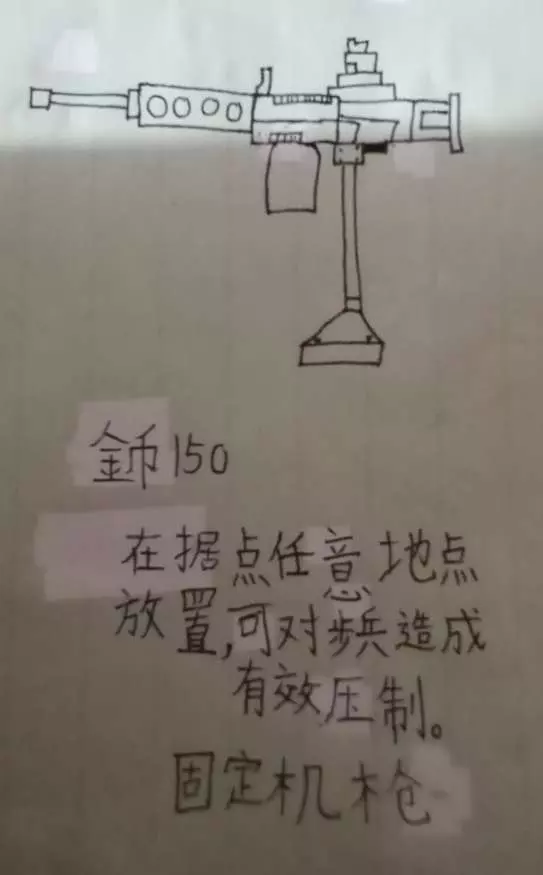 金币150
在据点任意地点
放置,可对步兵造成
有效压制。
固定机枪